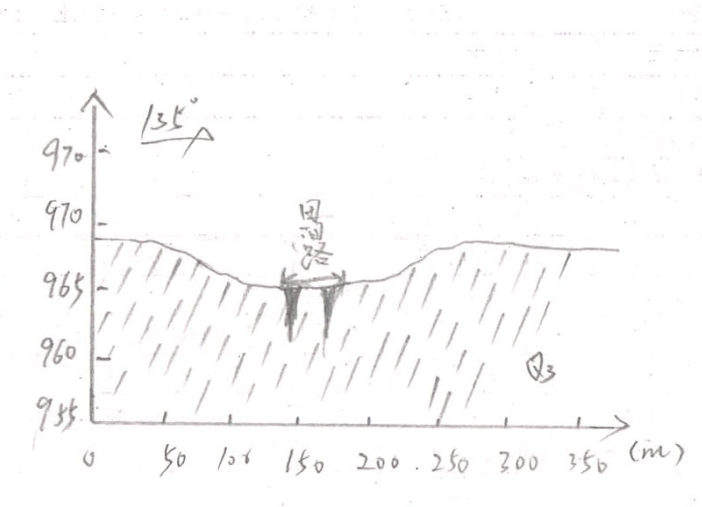 135°
970
970
路
965
960
Q3
955
0 50 100 150 200 250 300 350 (m)